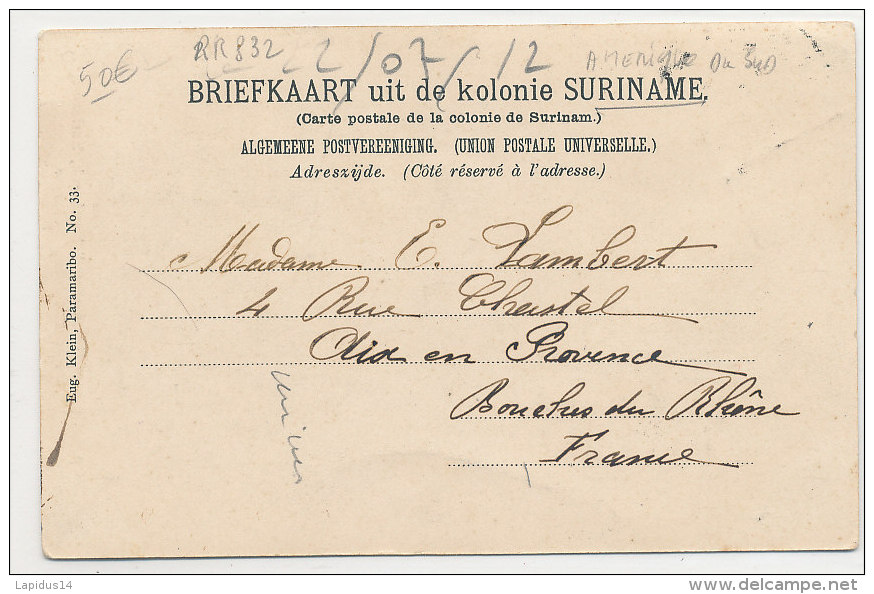 50€
RR832 2/07/12 AMERIQUE DU SUD
BRIEFKAART uit de kolonie SURINAME.
(Carte postale de la colonie de Surinam.)
ALGEMEENE POSTVEREENIGING. (UNION POSTALE UNIVERSELLE.)
Adreszijde. (Côté réservé à l'adresse.)
Madame E. Lambert
4 Rue Chastel
Aix en Provence
Bouches du Rhône
France
Eug. Klein, Paramaribo. No. 33.
Lapidus14
delcampe.net